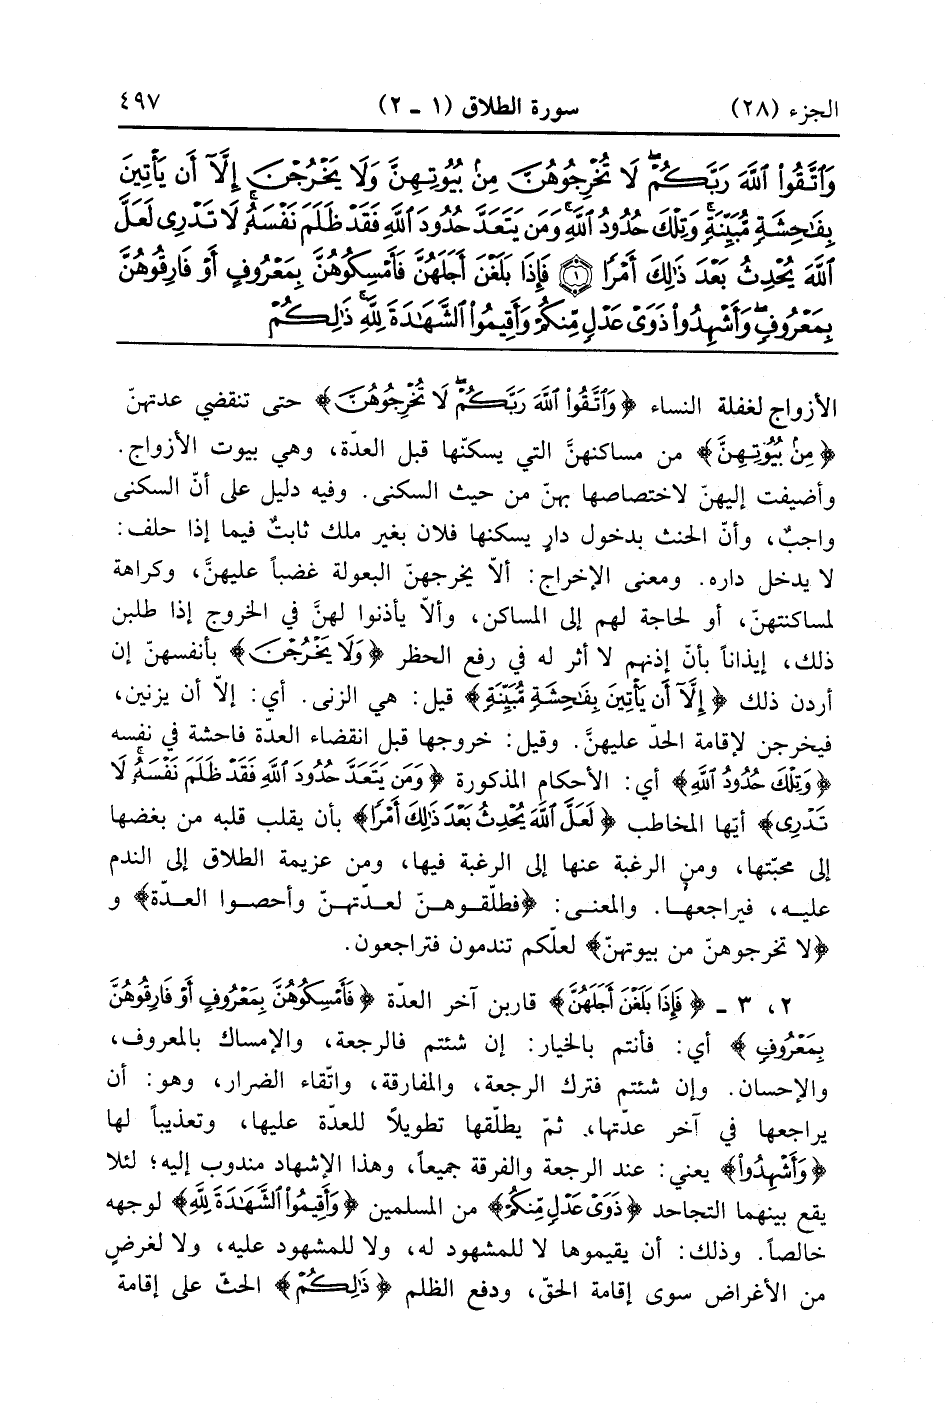 الجزء (٢٨) سورة الطلاق (١ ـ ٢) ٤٩٧
وَٱتَّقُوا۟ ٱللَّهَ رَبَّكُمْ ۖ لَا تُخْرِجُوهُنَّ مِنۢ بُيُوتِهِنَّ وَلَا يَخْرُجْنَ إِلَّآ أَن يَأْتِينَ
بِفَـٰحِشَةٍ مُّبَيِّنَةٍ ۚ وَتِلْكَ حُدُودُ ٱللَّهِ ۚ وَمَن يَتَعَدَّ حُدُودَ ٱللَّهِ فَقَدْ ظَلَمَ نَفْسَهُۥ ۚ لَا تَدْرِى لَعَلَّ
ٱللَّهَ يُحْدِثُ بَعْدَ ذَٰلِكَ أَمْرًا ﴿١﴾ فَإِذَا بَلَغْنَ أَجَلَهُنَّ فَأَمْسِكُوهُنَّ بِمَعْرُوفٍ أَوْ فَارِقُوهُنَّ
بِمَعْرُوفٍ ۖ وَأَشْهِدُوا۟ ذَوَىْ عَدْلٍ مِّنكُمْ وَأَقِيمُوا۟ ٱلشَّهَـٰدَةَ لِلَّهِ ۚ ذَٰلِكُمْ
الأزواج لغفلة النساء ﴿وَٱتَّقُوا۟ ٱللَّهَ رَبَّكُمْ ۖ لَا تُخْرِجُوهُنَّ﴾ حتى تنقضي عدتهنّ
﴿مِنۢ بُيُوتِهِنَّ﴾ من مساكنهنَّ التي يسكنّها قبل العدّة، وهي بيوت الأزواج.
وأضيفت إليهنّ لاختصاصها بهنّ من حيث السكنى. وفيه دليل على أنّ السكنى
واجبٌ، وأنّ الحنث بدخول دارٍ يسكنها فلان بغير ملك ثابتٌ فيما إذا حلف:
لا يدخل داره. ومعنى الإخراج: ألاّ يخرجهنّ البعولة غضباً عليهنَّ، وكراهة
لمساكنتهنّ، أو لحاجة لهم إلى المساكن، وألاّ يأذنوا لهنَّ في الخروج إذا طلبن
ذلك، إيذاناً بأنّ إذنهم لا أثر له في رفع الحظر ﴿وَلَا يَخْرُجْنَ﴾ بأنفسهنّ إن
أردن ذلك ﴿إِلَّآ أَن يَأْتِينَ بِفَـٰحِشَةٍ مُّبَيِّنَةٍ﴾ قيل: هي الزنى. أي: إلاّ أن يزنين،
فيخرجن لإقامة الحدّ عليهنَّ. وقيل: خروجها قبل انقضاء العدّة فاحشة في نفسه
﴿وَتِلْكَ حُدُودُ ٱللَّهِ﴾ أي: الأحكام المذكورة ﴿وَمَن يَتَعَدَّ حُدُودَ ٱللَّهِ فَقَدْ ظَلَمَ نَفْسَهُۥ ۚ لَا
تَدْرِى﴾ أيّها المخاطب ﴿لَعَلَّ ٱللَّهَ يُحْدِثُ بَعْدَ ذَٰلِكَ أَمْرًا﴾ بأن يقلب قلبه من بغضها
إلى محبّتها، ومن الرغبة عنها إلى الرغبة فيها، ومن عزيمة الطلاق إلى الندم
عليه، فيراجعها. والمعنى: ﴿فطلّقوهنّ لعدّتهنّ وأحصوا العدّة﴾ و
﴿لا تخرجوهنّ من بيوتهنّ﴾ لعلّكم تندمون فتراجعون.
٢، ٣ ـ ﴿فَإِذَا بَلَغْنَ أَجَلَهُنَّ﴾ قاربن آخر العدّة ﴿فَأَمْسِكُوهُنَّ بِمَعْرُوفٍ أَوْ فَارِقُوهُنَّ
بِمَعْرُوفٍ﴾ أي: فأنتم بالخيار: إن شئتم فالرجعة، والإمساك بالمعروف،
والإحسان. وإن شئتم فترك الرجعة، والمفارقة، واتّقاء الضرار، وهو: أن
يراجعها في آخر عدّتها، ثمّ يطلّقها تطويلاً للعدّة عليها، وتعذيباً لها
﴿وَأَشْهِدُوا۟﴾ يعني: عند الرجعة والفرقة جميعاً، وهذا الإشهاد مندوب إليه؛ لئلا
يقع بينهما التجاحد ﴿ذَوَىْ عَدْلٍ مِّنكُمْ﴾ من المسلمين ﴿وَأَقِيمُوا۟ ٱلشَّهَـٰدَةَ لِلَّهِ﴾ لوجهه
خالصاً. وذلك: أن يقيموها لا للمشهود له، ولا للمشهود عليه، ولا لغرضٍ
من الأغراض سوى إقامة الحقّ، ودفع الظلم ﴿ذَٰلِكُمْ﴾ الحثّ على إقامة